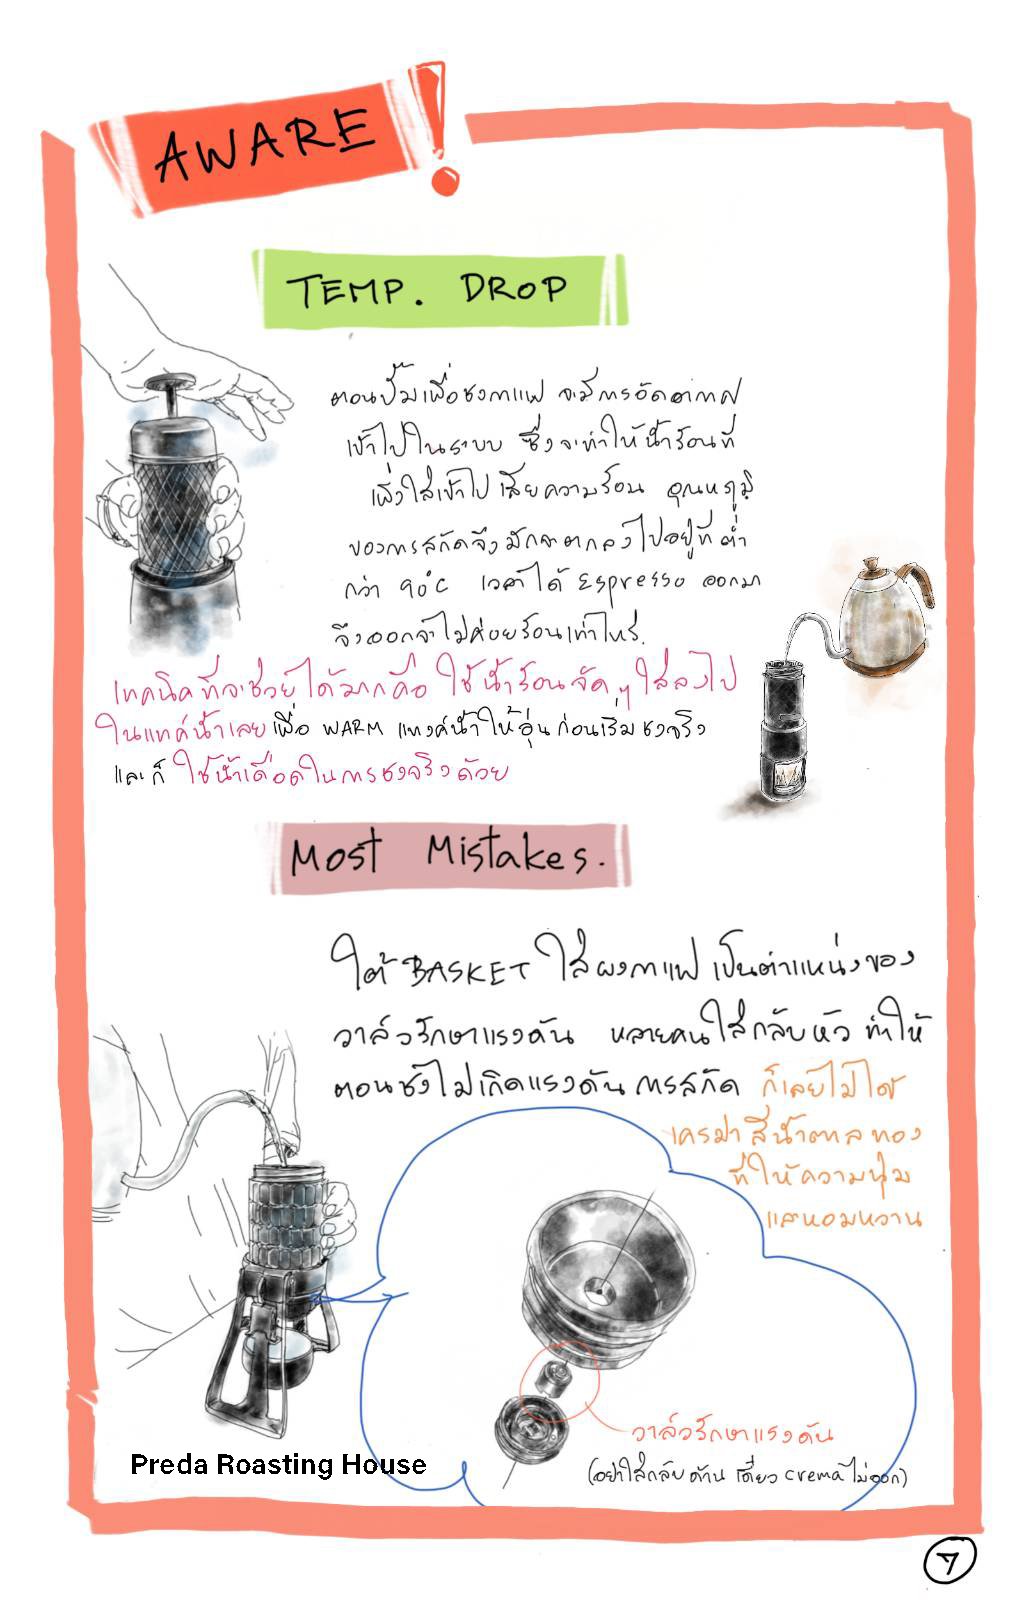 AWARE!
TEMP. DROP
ตอนปั๊มเพื่อชงกาแฟ จะมีการอัดอากาศ
เข้าไปในระบบ ซึ่งจะทำให้น้ำร้อนที่
เพิ่งใส่เข้าไป เสียความร้อน อุณหภูมิ
ของการสกัดจึงมักจะตกลงไปอยู่ที่ต่ำ
กว่า 90°C เวลาได้ Espresso ออกมา
จึงออกจะไม่ค่อยร้อนเท่าไหร่.
เทคนิคที่จะช่วยได้มากคือ ใช้น้ำร้อนจัดๆ ใส่ลงไป
ในแทค์น้ำเลยเพื่อ WARM แทงค์น้ำให้อุ่นก่อนเริ่มชงจริง
และก็ ใช้น้ำเดือดในการชงจริงด้วย
Most Mistakes.
ใต้ BASKET ใส่ผงกาแฟ เป็นตำแหน่งของ
วาล์วรักษาแรงดัน หลายคนใส่กลับหัว ทำให้
ตอนชงไม่เกิดแรงดันการสกัด ก็เลยไม่ได้
เครม่า สีน้ำตาลทอง
ที่ให้ความนุ่ม
และหอมหวาน
วาล์วรักษาแรงดัน
(อย่าใส่กลับด้าน เดี๋ยว crema ไม่ออก)
Preda Roasting House
๗